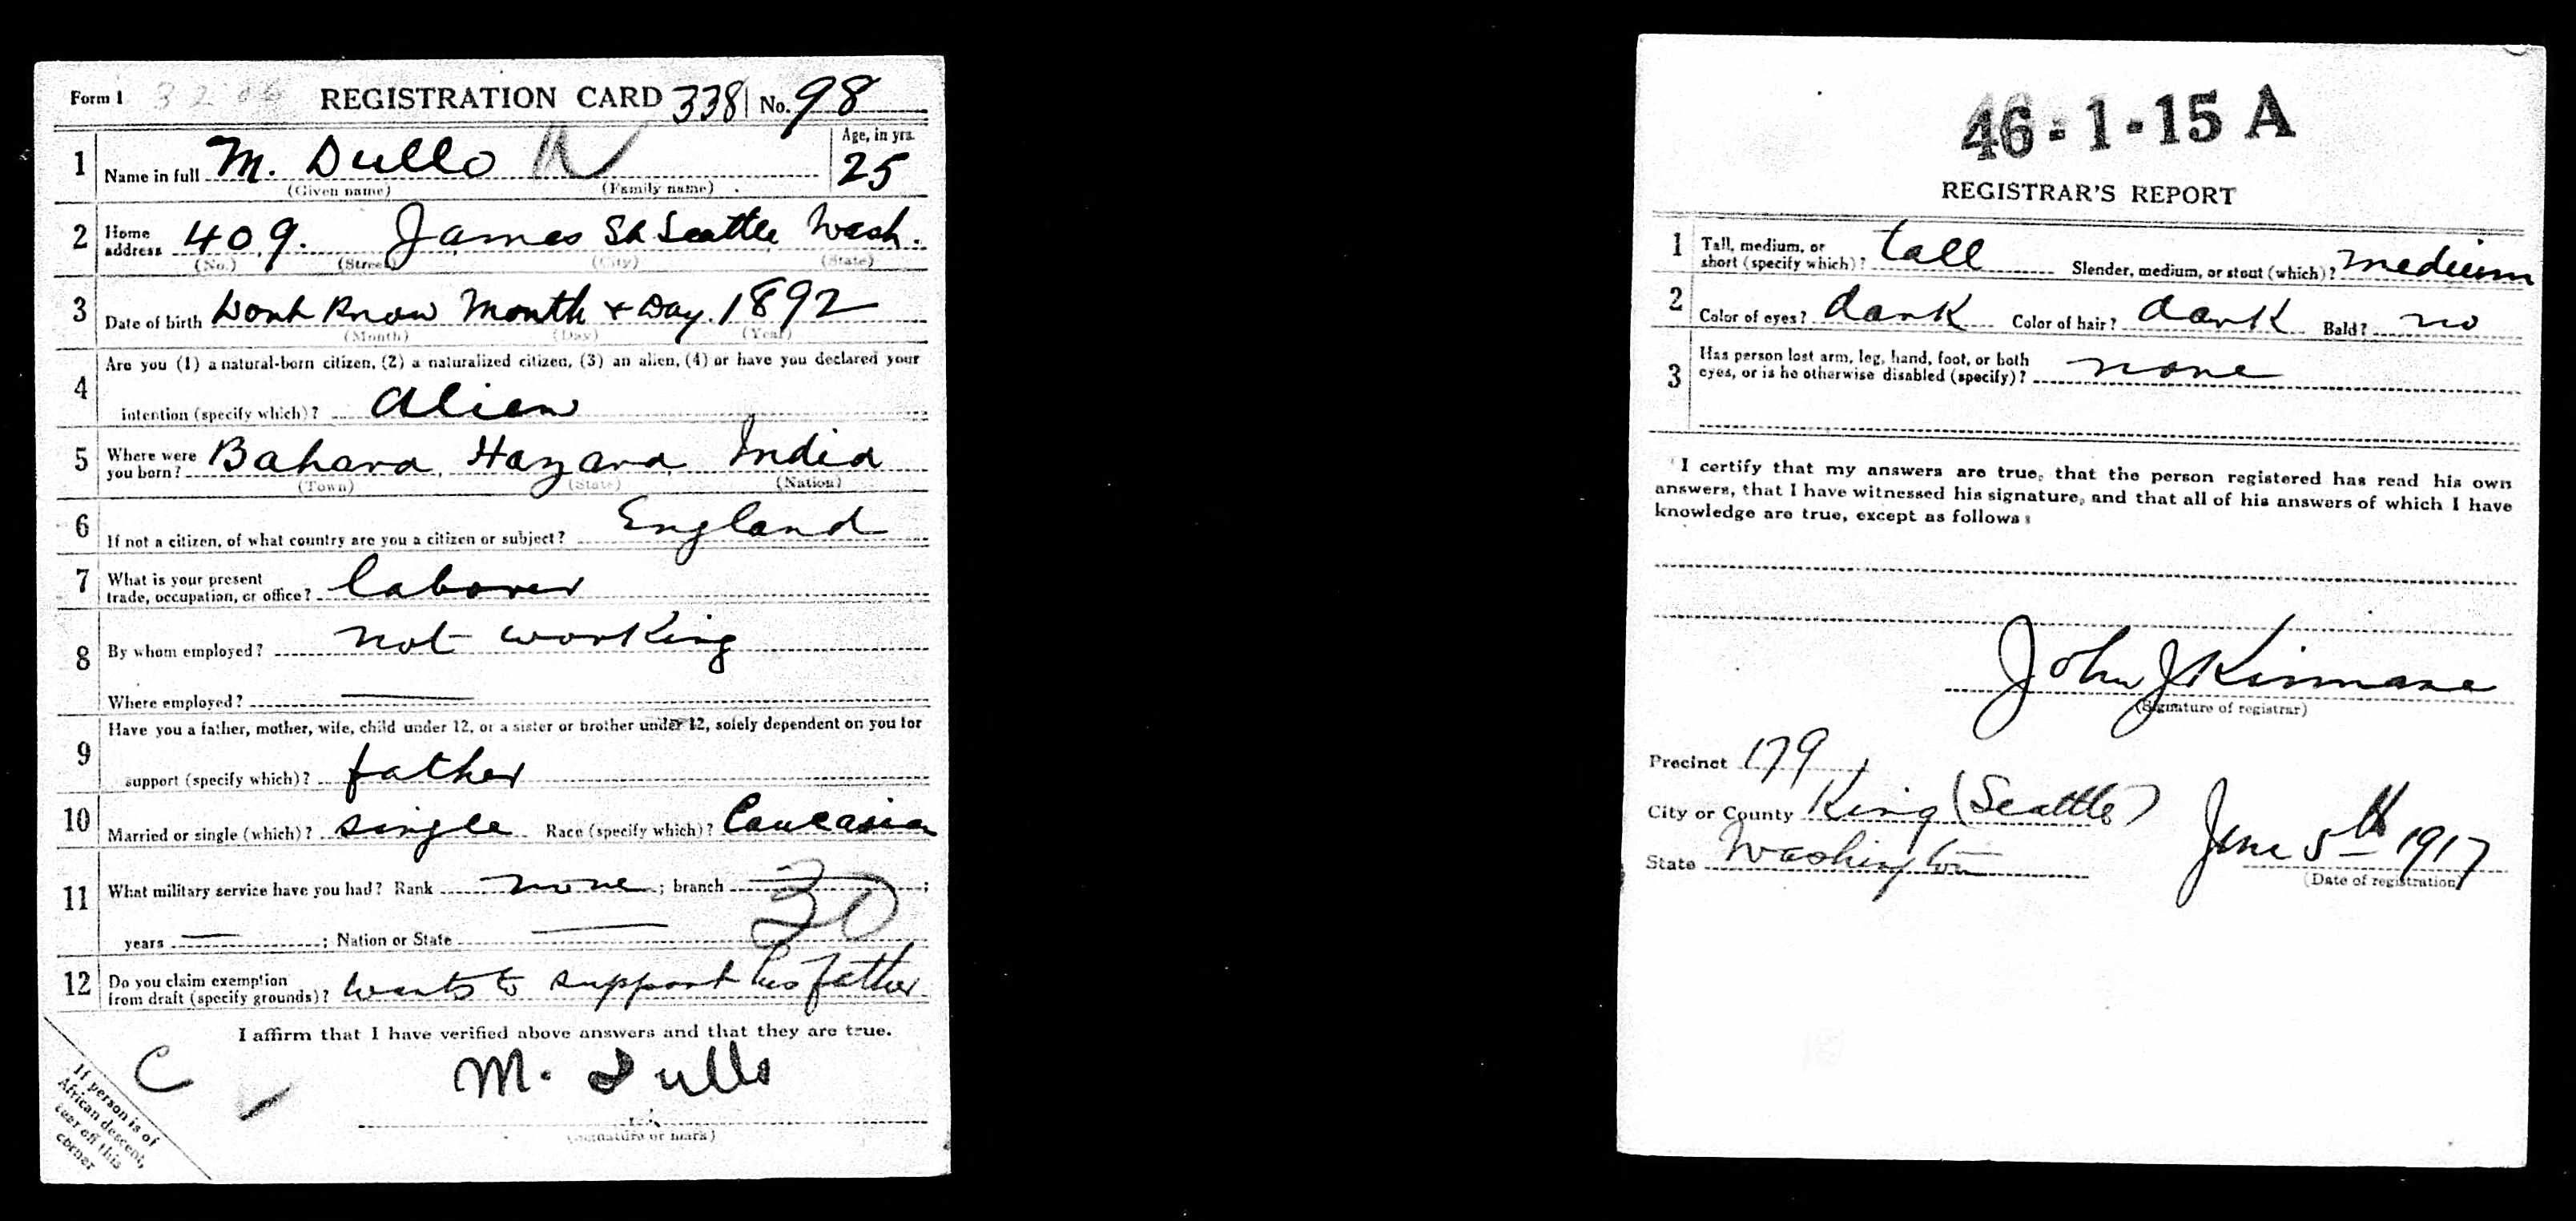 Form 1 REGISTRATION CARD 3381 No. 98
1 Name in full M. Dullo Age, in yrs. 25
(Given name) (Family name)
2 Home address 409. James St Seattle Wash.
(No.) (Street) (City) (State)
3 Date of birth Dont Know Month + Day. 1892
(Month) (Day) (Year)
4 Are you (1) a natural-born citizen, (2) a naturalized citizen, (3) an alien, (4) or have you declared your
intention (specify which)? alien
5 Where were you born? Bahara, Hazara, India
(Town) (State) (Nation)
6 If not a citizen, of what country are you a citizen or subject? England
7 What is your present trade, occupation, or office? laborer
8 By whom employed? not working
Where employed? ——
9 Have you a father, mother, wife, child under 12, or a sister or brother under 12, solely dependent on you for
support (specify which)? father
10 Married or single (which)? single Race (specify which)? Caucasian
11 What military service have you had? Rank none ; branch ;
years — ; Nation or State —
30
12 Do you claim exemption from draft (specify grounds)? wants to support his father
I affirm that I have verified above answers and that they are true.
C
M. Dullo
(Signature or mark)
If person is of
African descent,
tear off this
corner
46-1-15 A
REGISTRAR'S REPORT
1 Tall, medium, or short (specify which)? tall Slender, medium, or stout (which)? medium
2 Color of eyes? dark Color of hair? dark Bald? no
3 Has person lost arm, leg, hand, foot, or both
eyes, or is he otherwise disabled (specify)? none
I certify that my answers are true, that the person registered has read his own
answers, that I have witnessed his signature, and that all of his answers of which I have
knowledge are true, except as follows:
John J Kinnane
(Signature of registrar)
Precinct 179
City or County King (Seattle)
State Washington June 5th 1917
(Date of registration)